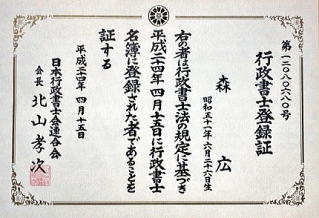 行政書士登録証
第一二〇八〇六八〇号
森 広
昭和五十一年六月二十六日生
右の者は行政書士法の規定に基づき
平成二十四年四月十五日に行政書士
名簿に登録された者であることを
証する
平成二十四年四月十五日
日本行政書士会連合会
会長 北山孝次